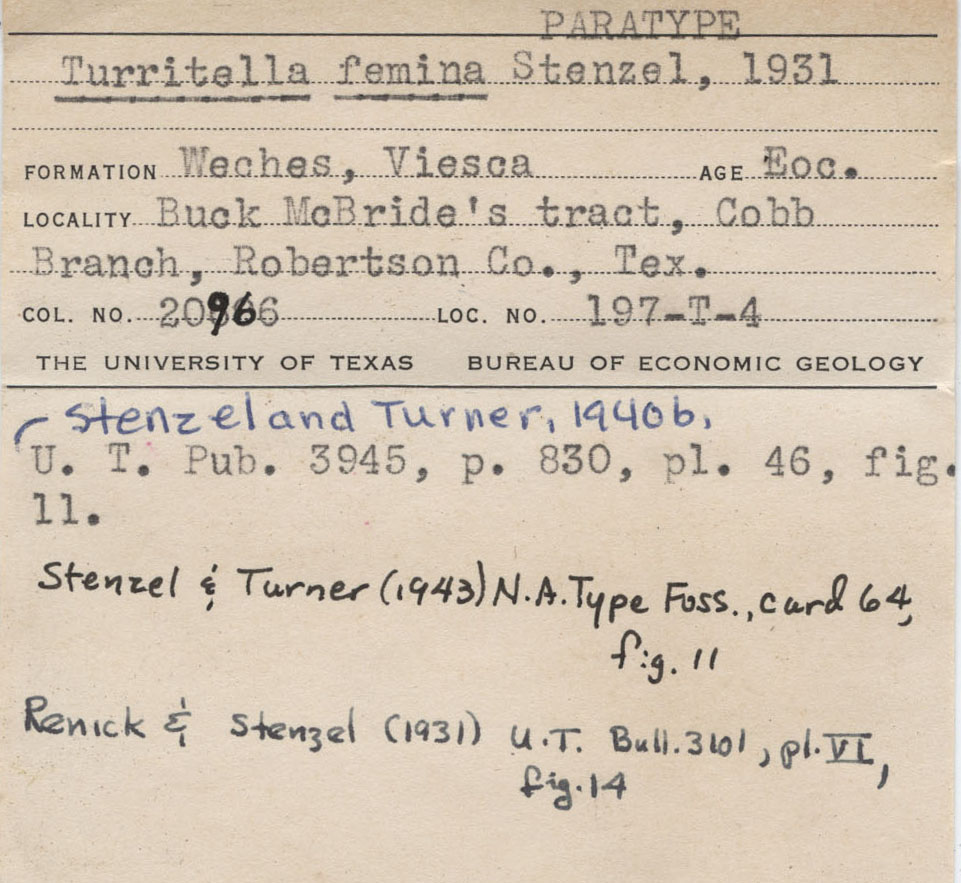 PARATYPE
Turritella femina Stenzel, 1931
FORMATION Weches, Viesca AGE Eoc.
LOCALITY Buck McBride's tract, Cobb
Branch, Robertson Co., Tex.
COL. NO. LOC. NO. 197-T-4
THE UNIVERSITY OF TEXAS BUREAU OF ECONOMIC GEOLOGY
Stenzel and Turner, 1940b,
U. T. Pub. 3945, p. 830, pl. 46, fig.
11.
Stenzel & Turner (1943) N.A. Type Foss., card 64,
fig. 11
Renick & Stenzel (1931) U.T. Bull. 3101, pl. VI,
fig. 14